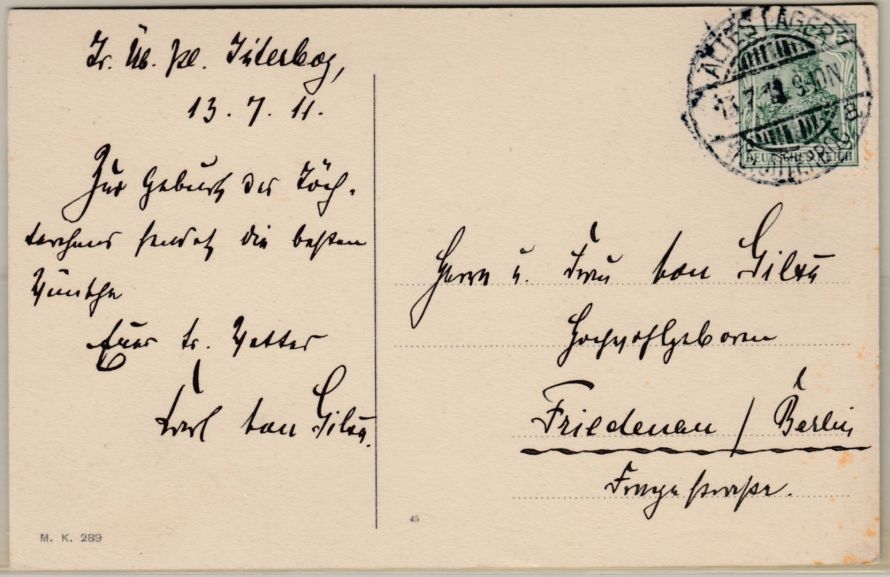 Tr. Üb. pl. Jüterbog,
13. 7. 11.
Zur Geburt des Töch-
terchens sendet die besten
Wünsche
Euer tr. Vetter
Karl von Gilsa.
Herrn u. Frau von Gilsa
Hochwohlgeboren
Friedenau / Berlin
ALTES LAGER
13.7.11 9-10N
JÜTERBOG
DEUTSCHES REICH
M. K. 289
45